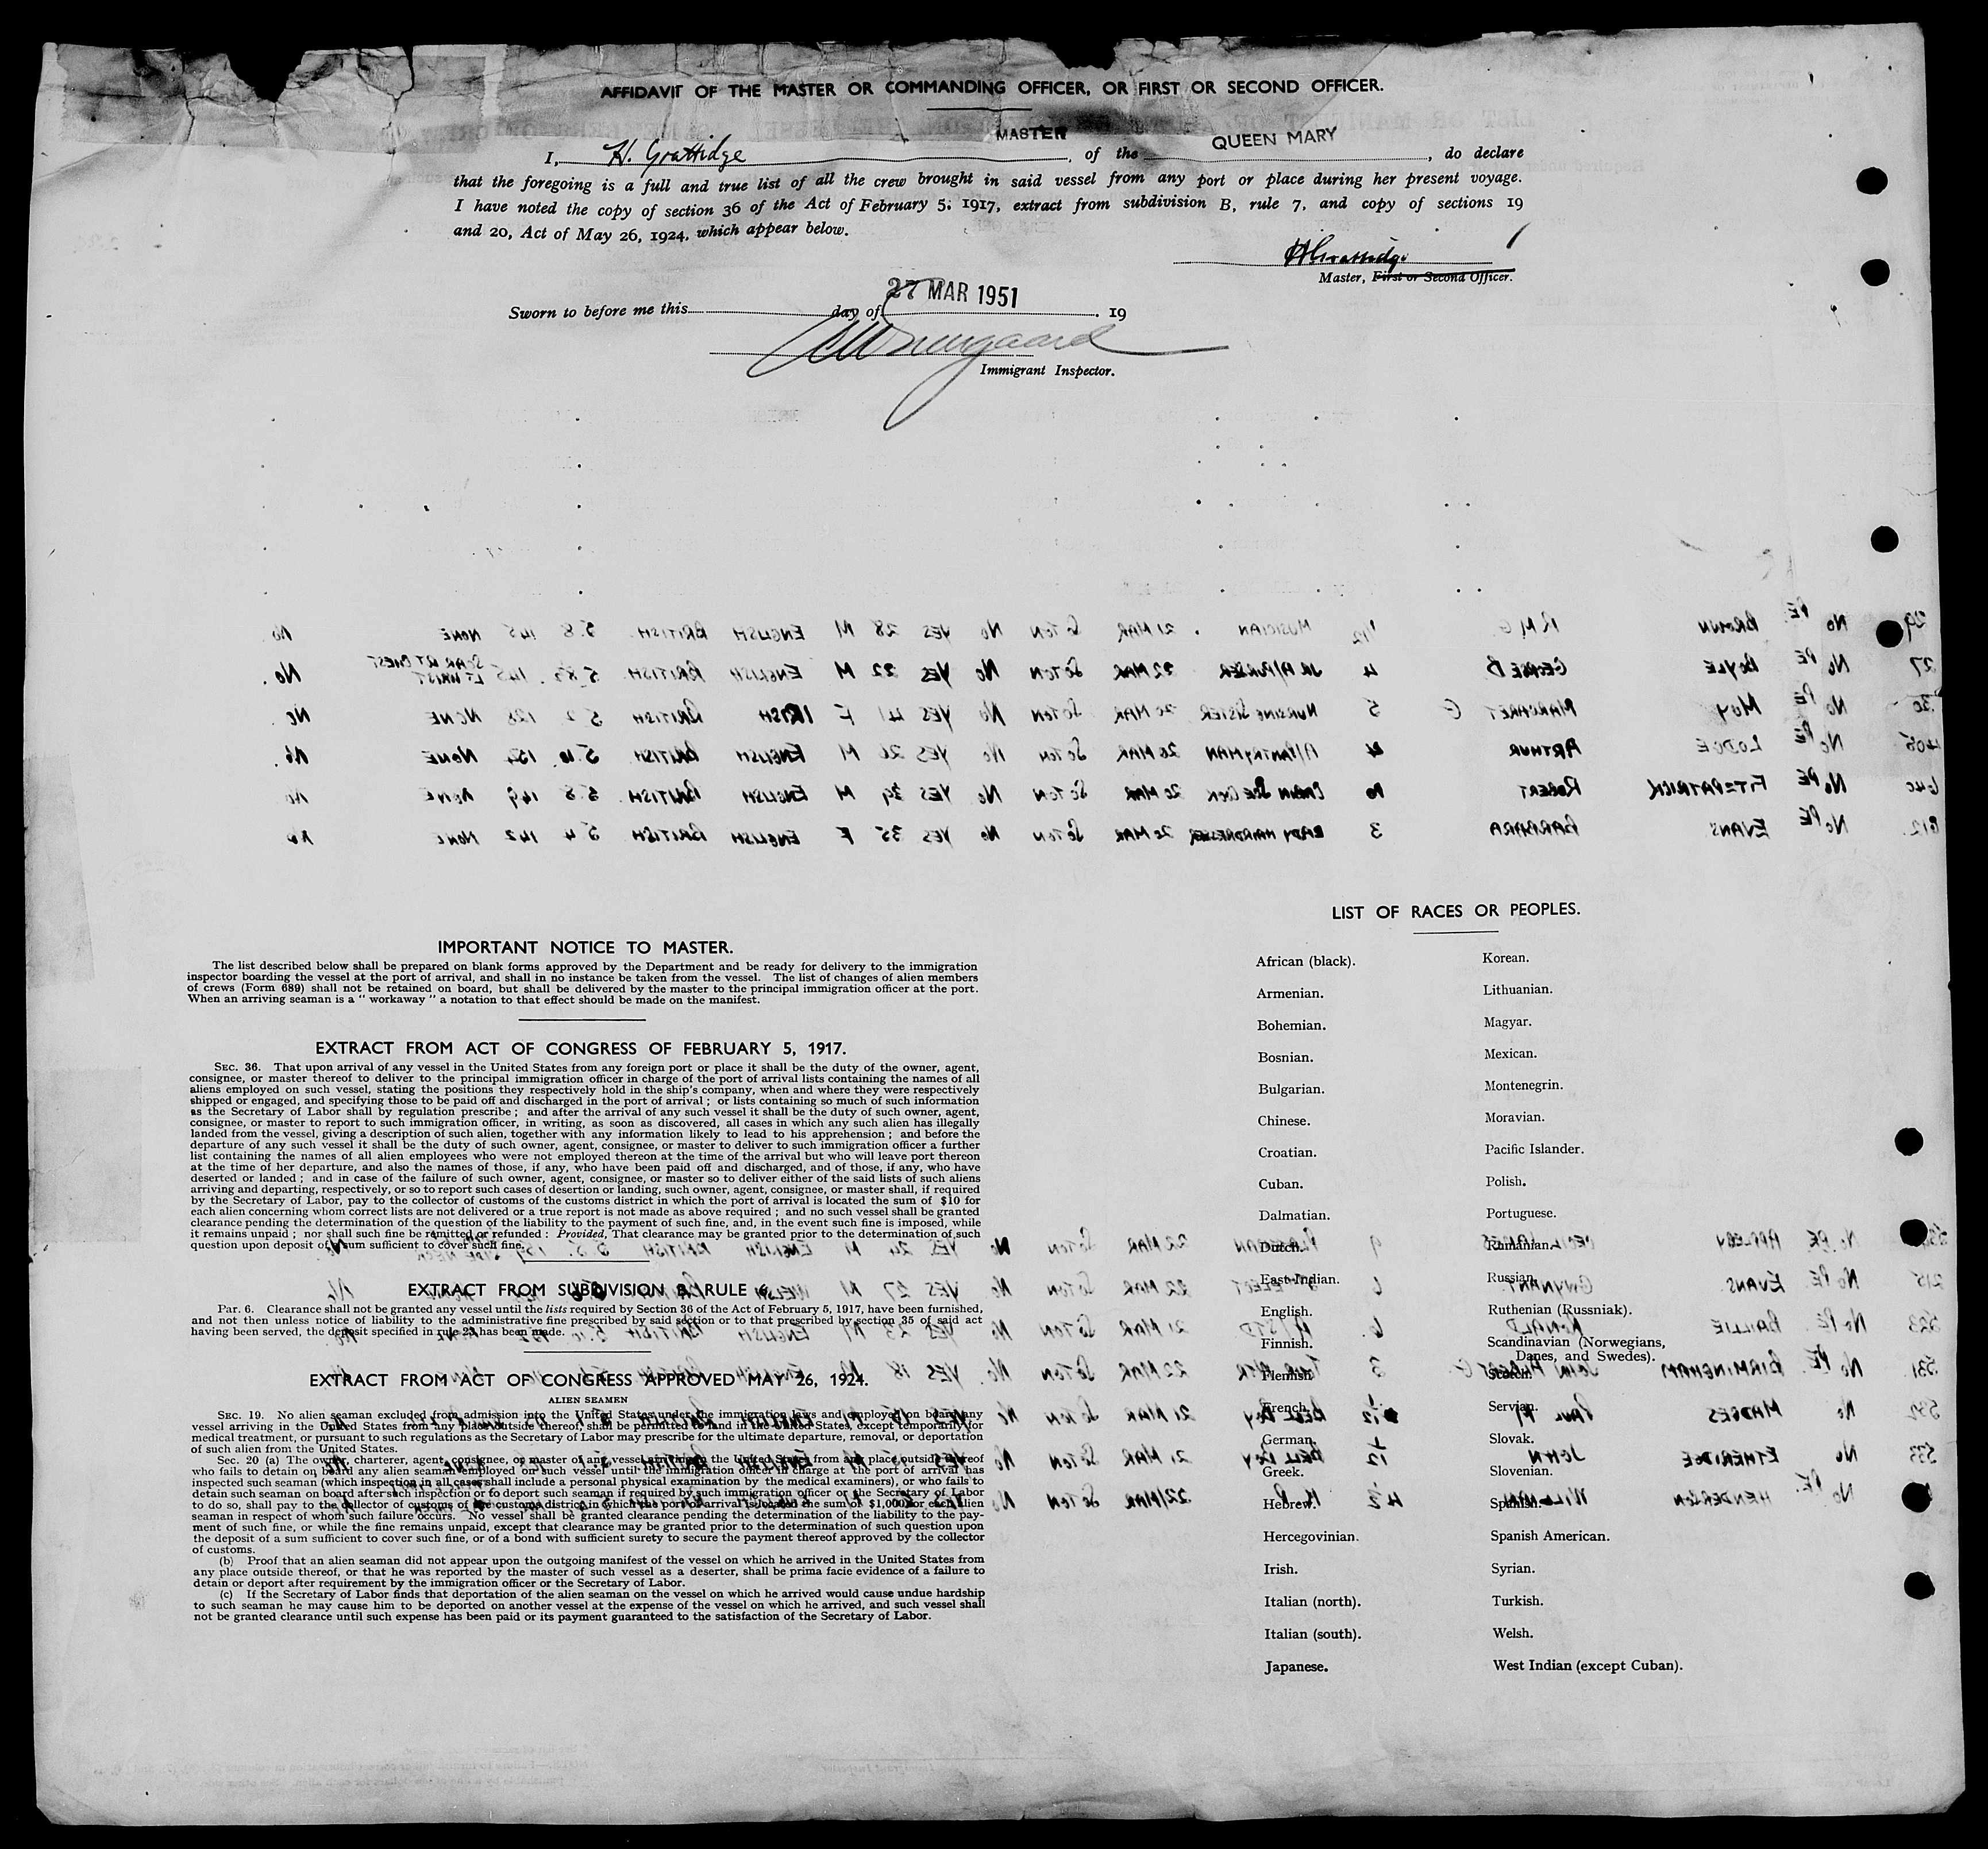 AFFIDAVIT OF THE MASTER OR COMMANDING OFFICER, OR FIRST OR SECOND OFFICER.
I, H. Grattidge MASTER, of the QUEEN MARY, do declare
that the foregoing is a full and true list of all the crew brought in said vessel from any port or place during her present voyage.
I have noted the copy of section 36 of the Act of February 5, 1917, extract from subdivision B, rule 7, and copy of sections 19
and 20, Act of May 26, 1924, which appear below.
H Grattidge
Master, First or Second Officer.
27 MAR 1951
Sworn to before me this day of . 19
Immigrant Inspector.
29 No PE. BROWN R M G 1/12 MUSICIAN 21 MAR SOTON No YES 28 M ENGLISH BRITISH 5.8 145 NONE No.
27 No PE BOYLE GEORGE B 4 JR A/PURSER 22 MAR SOTON No YES 22 M ENGLISH BRITISH 5 8½ 145 SCAR RT CHEST LT WRIST No.
30 No PE MOY MARGARET G 5 NURSING SISTER 20 MAR SOTON No YES 41 F IRISH BRITISH 5 2 128 NONE No.
405 No PE LODGE ARTHUR 4 A/PANTRYMAN 20 MAR SOTON No YES 26 M ENGLISH BRITISH 5.10 154 NONE No.
640 No PE FITZPATRICK ROBERT 10 20 MAR SOTON No YES 39 M ENGLISH BRITISH 5.8 149 NONE No
612 No PE EVANS BARBARA 3 LADY HAIRDRESSER 20 MAR SOTON No YES 35 F ENGLISH BRITISH 5 4 142 NONE No
IMPORTANT NOTICE TO MASTER.
The list described below shall be prepared on blank forms approved by the Department and be ready for delivery to the immigration
inspector boarding the vessel at the port of arrival, and shall in no instance be taken from the vessel. The list of changes of alien members
of crews (Form 689) shall not be retained on board, but shall be delivered by the master to the principal immigration officer at the port.
When an arriving seaman is a " workaway " a notation to that effect should be made on the manifest.
EXTRACT FROM ACT OF CONGRESS OF FEBRUARY 5, 1917.
SEC. 36. That upon arrival of any vessel in the United States from any foreign port or place it shall be the duty of the owner, agent,
consignee, or master thereof to deliver to the principal immigration officer in charge of the port of arrival lists containing the names of all
aliens employed on such vessel, stating the positions they respectively hold in the ship's company, when and where they were respectively
shipped or engaged, and specifying those to be paid off and discharged in the port of arrival ; or lists containing so much of such information
as the Secretary of Labor shall by regulation prescribe ; and after the arrival of any such vessel it shall be the duty of such owner, agent,
consignee, or master to report to such immigration officer, in writing, as soon as discovered, all cases in which any such alien has illegally
landed from the vessel, giving a description of such alien, together with any information likely to lead to his apprehension ; and before the
departure of any such vessel it shall be the duty of such owner, agent, consignee, or master to deliver to such immigration officer a further
list containing the names of all alien employees who were not employed thereon at the time of the arrival but who will leave port thereon
at the time of her departure, and also the names of those, if any, who have been paid off and discharged, and of those, if any, who have
deserted or landed ; and in case of the failure of such owner, agent, consignee, or master so to deliver either of the said lists of such aliens
arriving and departing, respectively, or so to report such cases of desertion or landing, such owner, agent, consignee, or master shall, if required
by the Secretary of Labor, pay to the collector of customs of the customs district in which the port of arrival is located the sum of $10 for
each alien concerning whom correct lists are not delivered or a true report is not made as above required ; and no such vessel shall be granted
clearance pending the determination of the question of the liability to the payment of such fine, and, in the event such fine is imposed, while
it remains unpaid ; nor shall such fine be remitted or refunded : Provided, That clearance may be granted prior to the determination of such
question upon deposit of a sum sufficient to cover such fine.
EXTRACT FROM SUBDIVISION B, RULE 6.
PAR. 6. Clearance shall not be granted any vessel until the lists required by Section 36 of the Act of February 5, 1917, have been furnished,
and not then unless notice of liability to the administrative fine prescribed by said section or to that prescribed by section 35 of said act
having been served, the deposit specified in rule 23 has been made.
EXTRACT FROM ACT OF CONGRESS APPROVED MAY 26, 1924.
ALIEN SEAMEN
SEC. 19. No alien seaman excluded from admission into the United States under the immigration laws and employed on board any
vessel arriving in the United States from any place outside thereof, shall be permitted to land in the United States, except temporarily for
medical treatment, or pursuant to such regulations as the Secretary of Labor may prescribe for the ultimate departure, removal, or deportation
of such alien from the United States.
SEC. 20 (a) The owner, charterer, agent, consignee, or master of any vessel arriving in the United States from any place outside thereof
who fails to detain on board any alien seaman employed on such vessel until the immigration officer in charge at the port of arrival has
inspected such seaman (which inspection in all cases shall include a personal physical examination by the medical examiners), or who fails to
detain such seaman on board after such inspection or to deport such seaman if required by such immigration officer or the Secretary of Labor
to do so, shall pay to the collector of customs of the customs district in which the port of arrival is located the sum of $1,000 for each alien
seaman in respect of whom such failure occurs. No vessel shall be granted clearance pending the determination of the liability to the pay-
ment of such fine, or while the fine remains unpaid, except that clearance may be granted prior to the determination of such question upon
the deposit of a sum sufficient to cover such fine, or of a bond with sufficient surety to secure the payment thereof approved by the collector
of customs.
(b) Proof that an alien seaman did not appear upon the outgoing manifest of the vessel on which he arrived in the United States from
any place outside thereof, or that he was reported by the master of such vessel as a deserter, shall be prima facie evidence of a failure to
detain or deport after requirement by the immigration officer or the Secretary of Labor.
(c) If the Secretary of Labor finds that deportation of the alien seaman on the vessel on which he arrived would cause undue hardship
to such seaman he may cause him to be deported on another vessel at the expense of the vessel on which he arrived, and such vessel shall
not be granted clearance until such expense has been paid or its payment guaranteed to the satisfaction of the Secretary of Labor.
LIST OF RACES OR PEOPLES.
African (black).
Armenian.
Bohemian.
Bosnian.
Bulgarian.
Chinese.
Croatian.
Cuban.
Dalmatian.
Dutch.
East Indian.
English.
Finnish.
Flemish.
French.
German.
Greek.
Hebrew.
Hercegovinian.
Irish.
Italian (north).
Italian (south).
Japanese.
Korean.
Lithuanian.
Magyar.
Mexican.
Montenegrin.
Moravian.
Pacific Islander.
Polish.
Portuguese.
Rumanian.
Russian.
Ruthenian (Russniak).
Scandinavian (Norwegians,
Danes, and Swedes).
Scotch.
Servian.
Slovak.
Slovenian.
Spanish.
Spanish American.
Syrian.
Turkish.
Welsh.
West Indian (except Cuban).
No PE APPLEBY 9 22 MAR SOTON No YES M ENGLISH BRITISH
215 No PE EVANS GWYNANT 6 22 MAR SOTON No YES 27 M WELSH
523 No PE. BAILLIE RONALD 6 21 MAR SOTON No YES 23 M ENGLISH BRITISH
531 No PE. BIRMINGHAM JOHN 3 22 MAR SOTON No. YES 18 M
532 No MADGES PAUL BELL BOY 21 MAR SOTON No YES
533 No ETHERIDGE JOHN 1/12 BELL BOY 21 MAR SOTON No YES
No PE. HENDERSON WILLIAM 4½ 22 MAR SOTON No